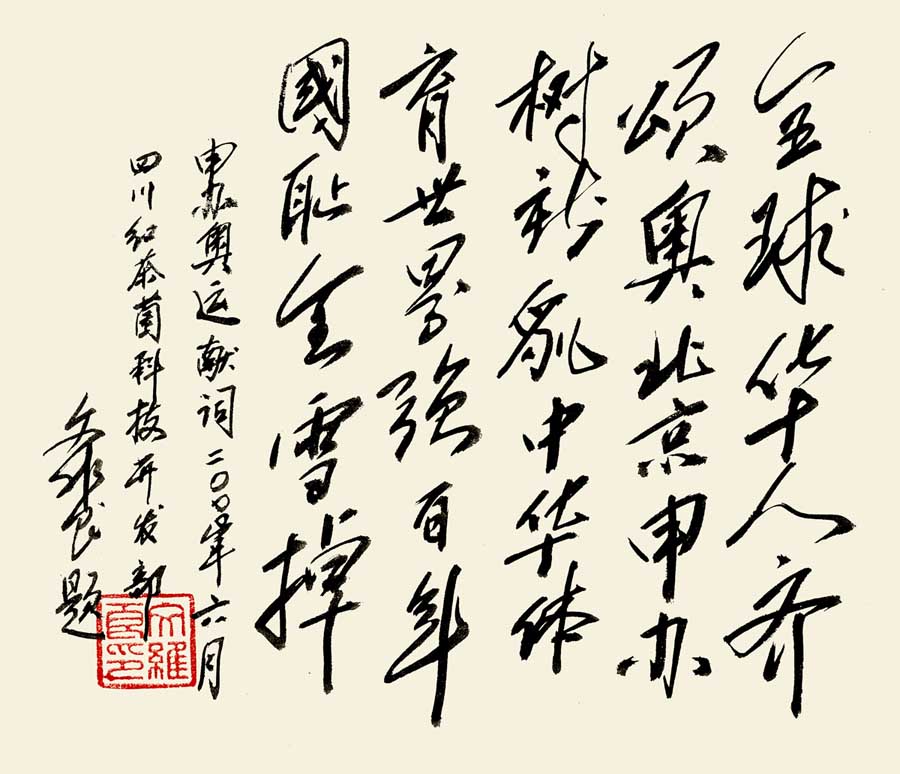 全球华人齐
颂奥北京申办
树新中华体
育世界强百年
國耻全雪掉
申办奥运献词二〇〇年六月
四川红茶菌科技开发部
文维良题
文維良印